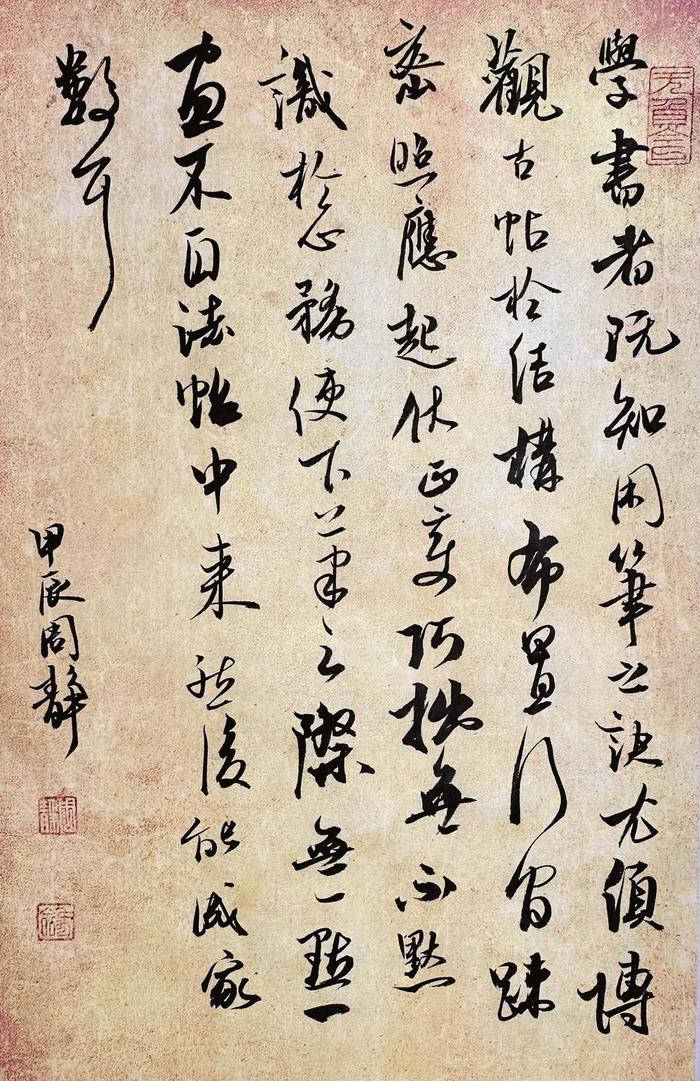 學書者既知用筆之訣尤須博
觀古帖於結構布置行間疎
密照應起伏正變巧拙無不默
識於心務使下筆之際無一點一
畫不自法帖中來然後能成家
數耳
甲辰周靜